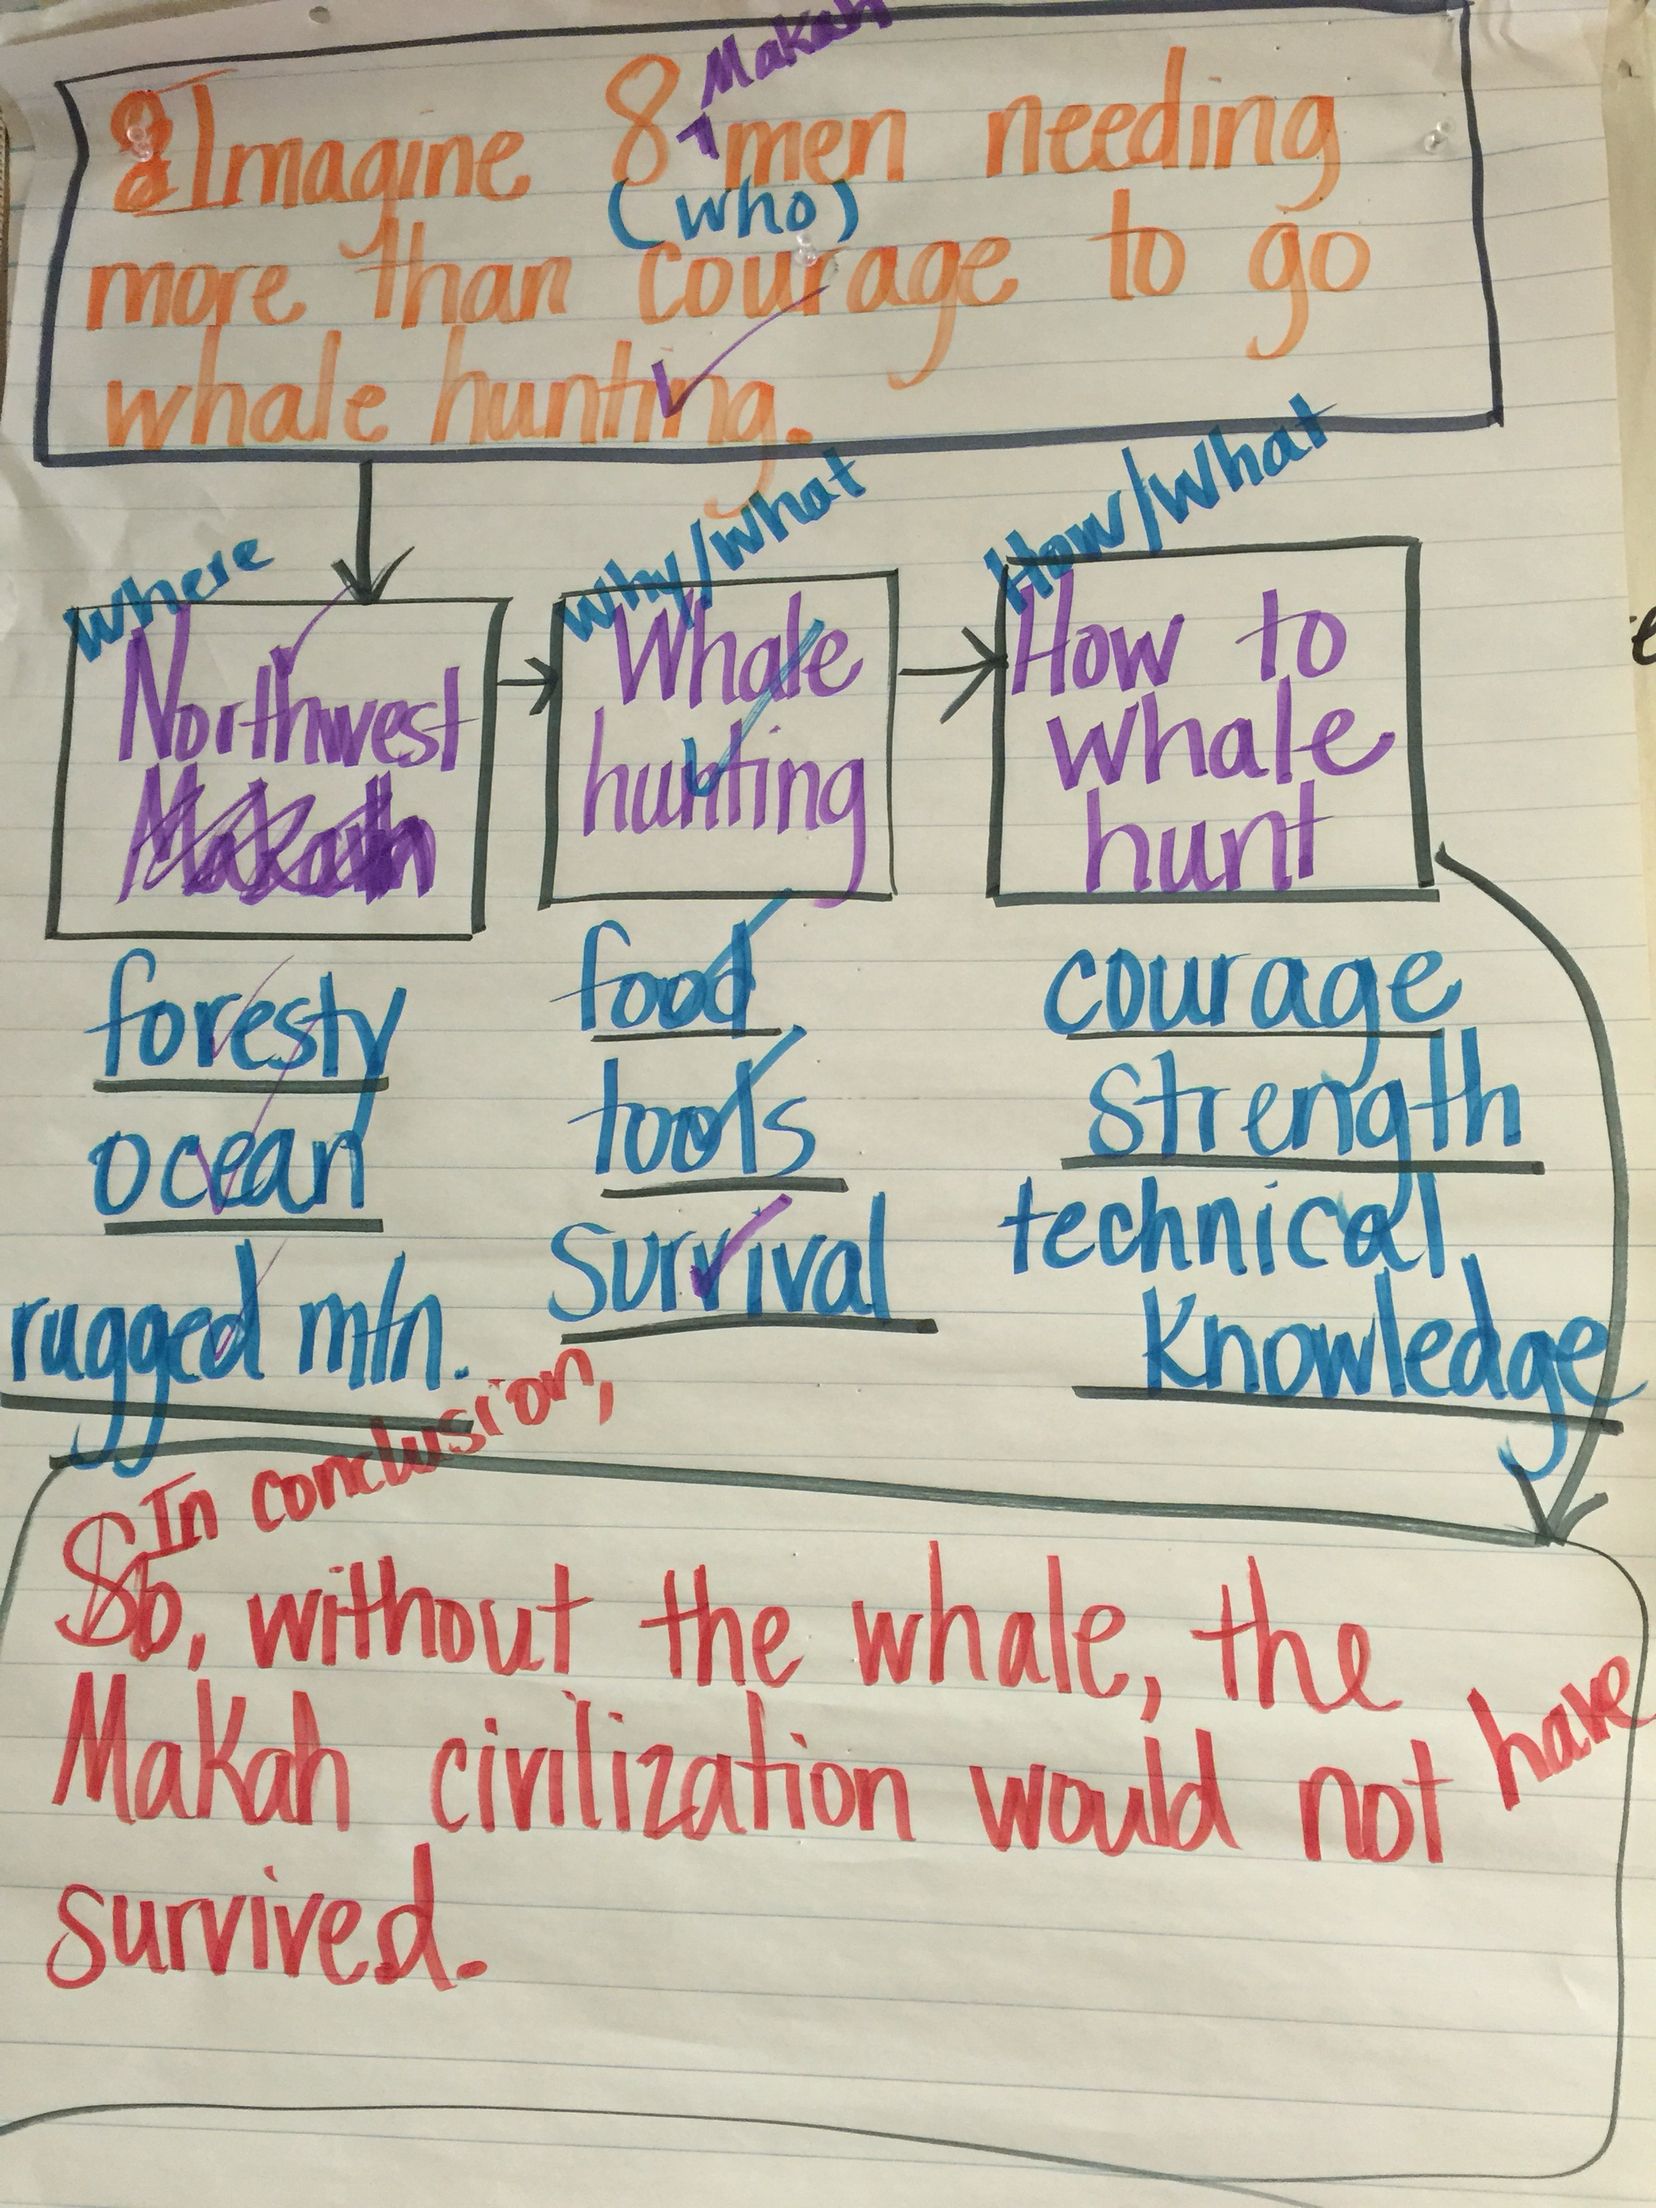 Imagine 8 Makah men needing
(who)
more than courage to go
whale hunting.
Where
Northwest
Makah
foresty
ocean
rugged mtn.
Why/What
Whale
hunting
food
tools
survival
How/What
How to
whale
hunt
courage
strength
technical
Knowledge
In conclusion,
So, without the whale, the
Makah civilization would not have
survived.